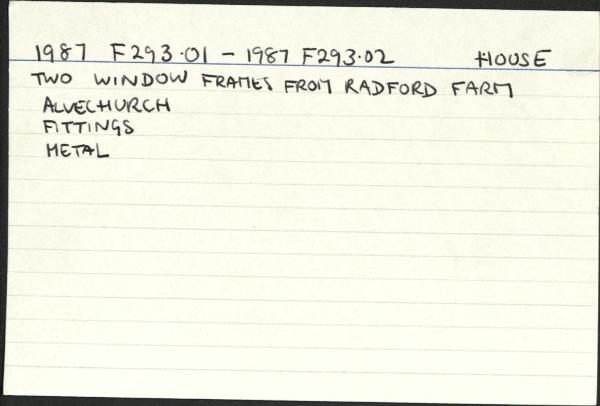 1987 F293.01 - 1987 F293.02 HOUSE
TWO WINDOW FRAMES FROM RADFORD FARM
ALVECHURCH
FITTINGS
METAL